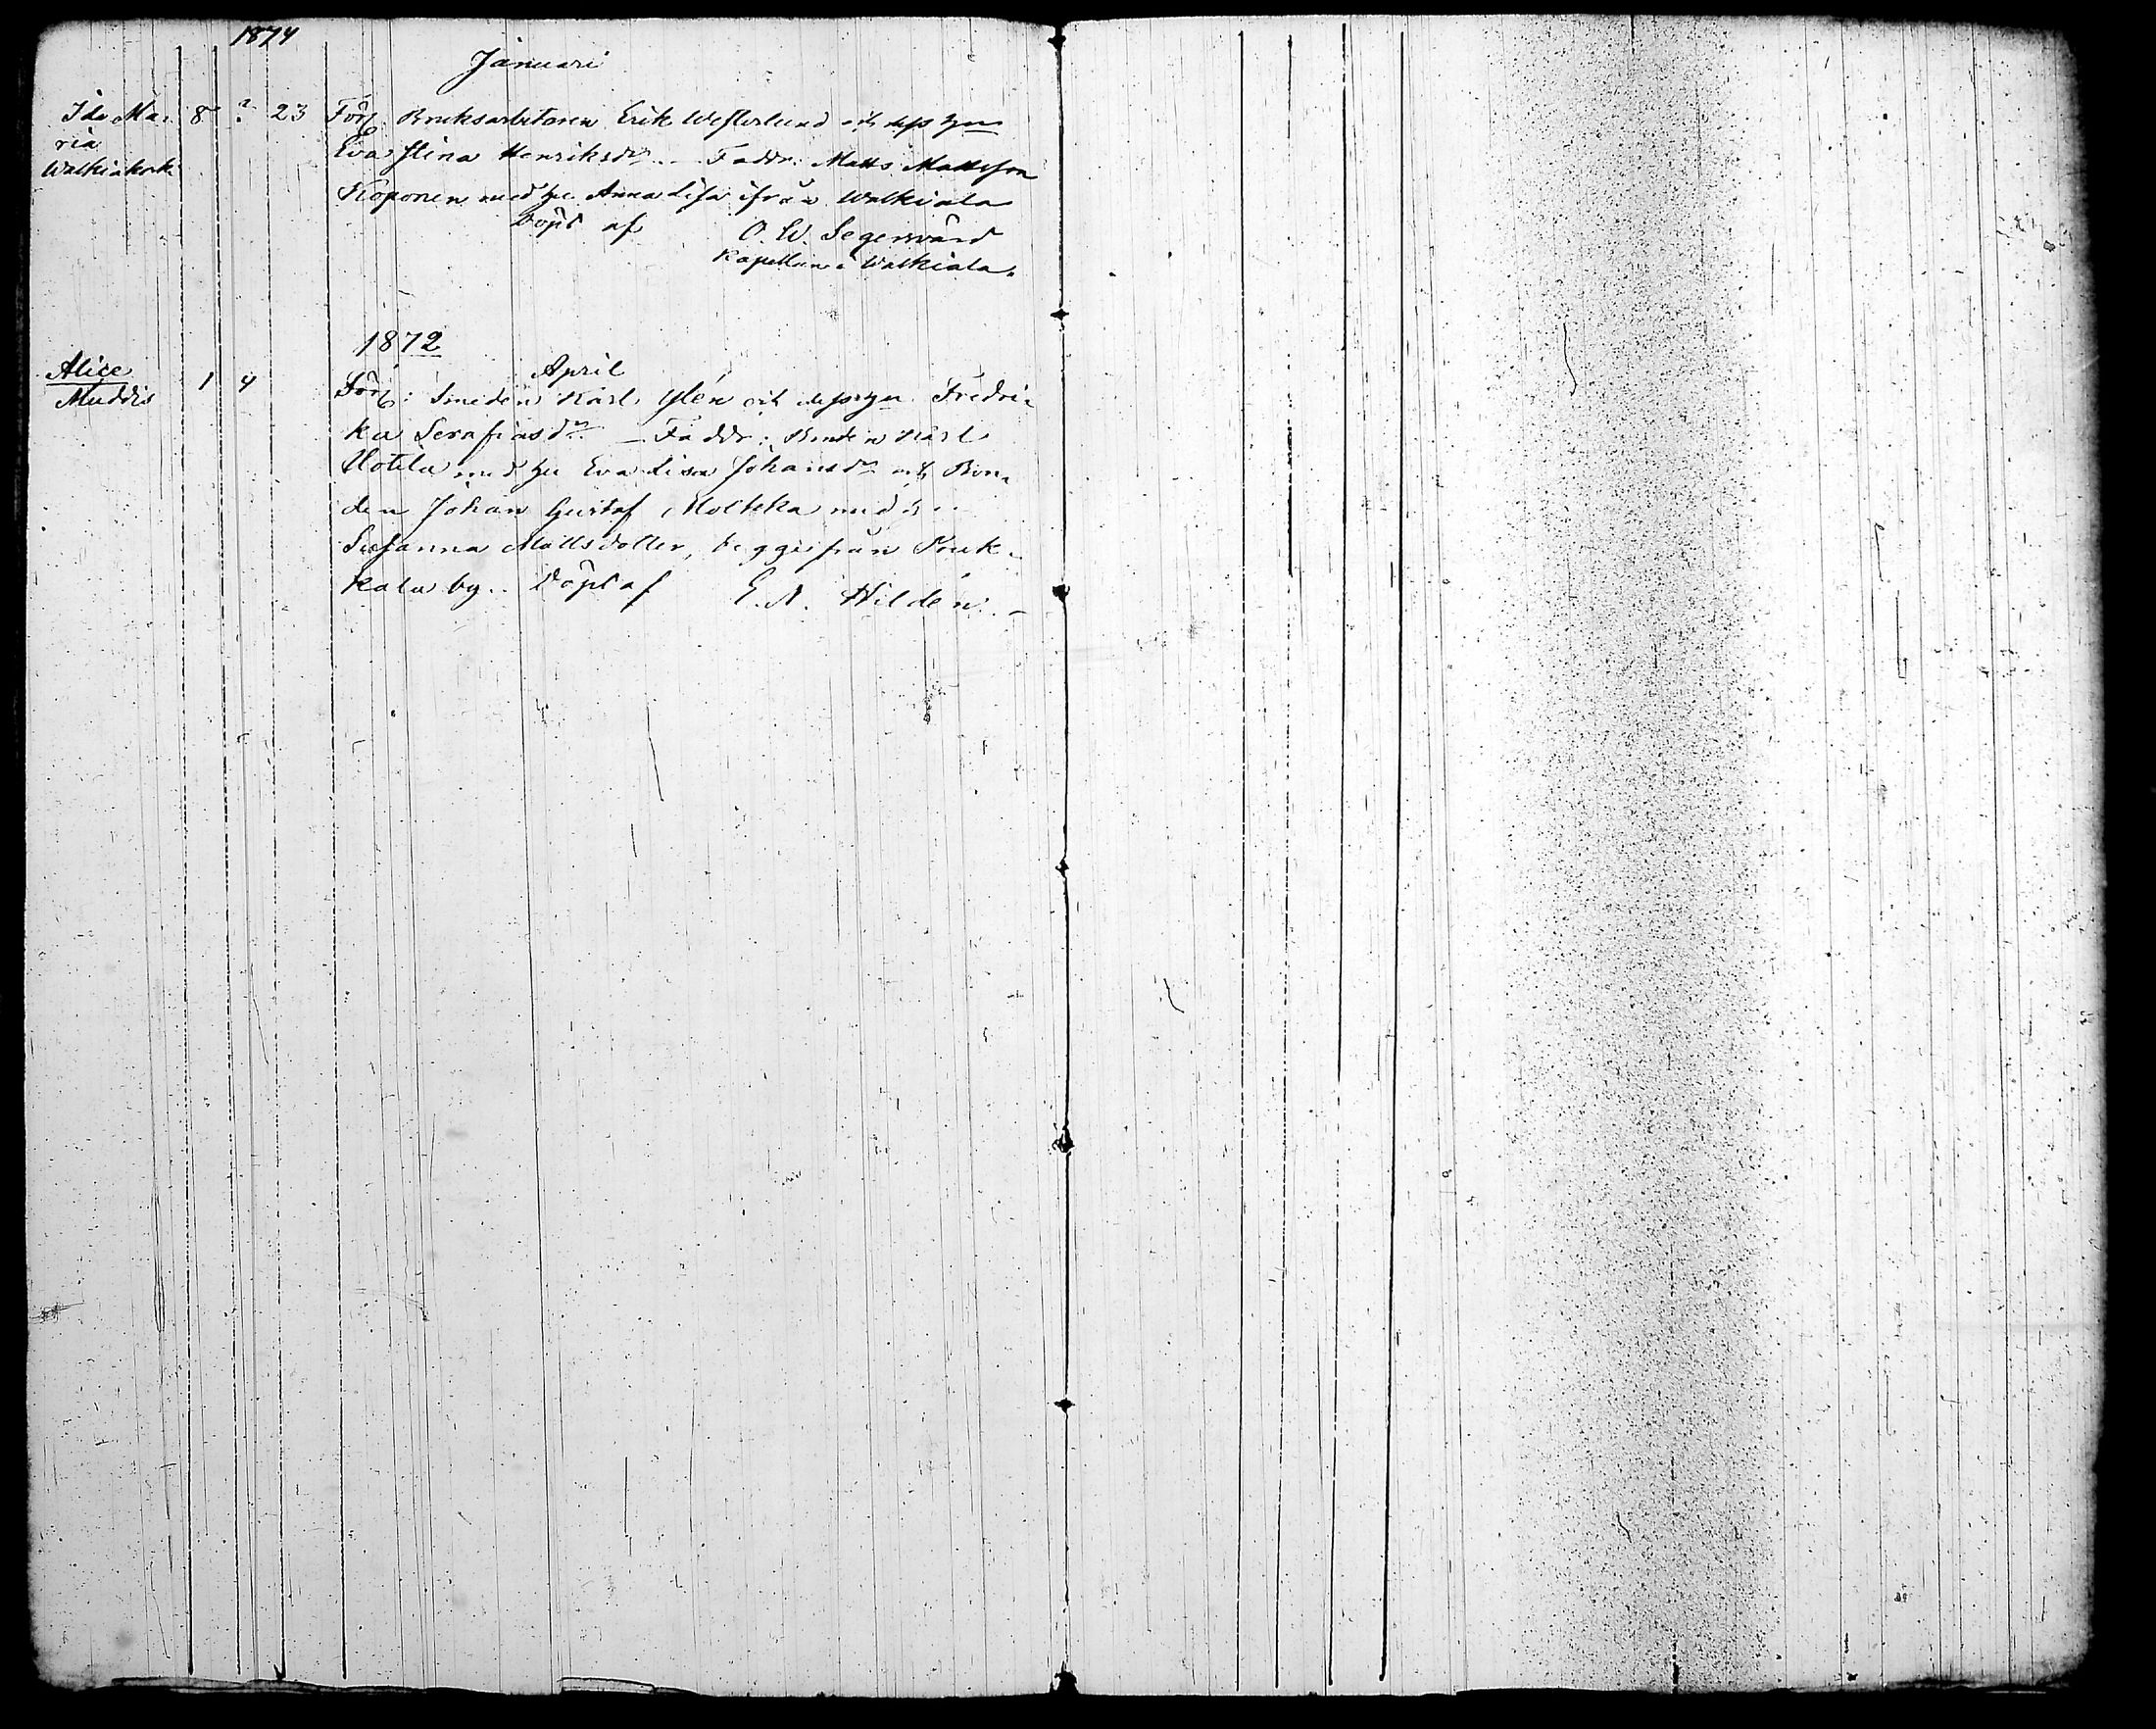 1874
Januari
Ida Ma- 8 ? 23 Förä. Bruksarbetaren Erik Westerlund och dess hu
ria Eva Stina Henriksdr. - Faddr: Matts Mattsson
Walkiakoski Koponen med hu Anna Lisa ifrån Walkiala
Döpt af O. W. Segervärd
Kapellan i Walkiala.
1872
April
Alice 1 4 Förä: Smeden Karl Ylén och dess hu Fredri-
Muddis ka Serafiasdr. - Faddr: Bonden Karl
Uotila med hu Eva Lisa Johansdr och Bon-
den Johan Gustaf med
Susanna Mattsdotter, begge från
kala by. Döpt af E. A. Hildén. -